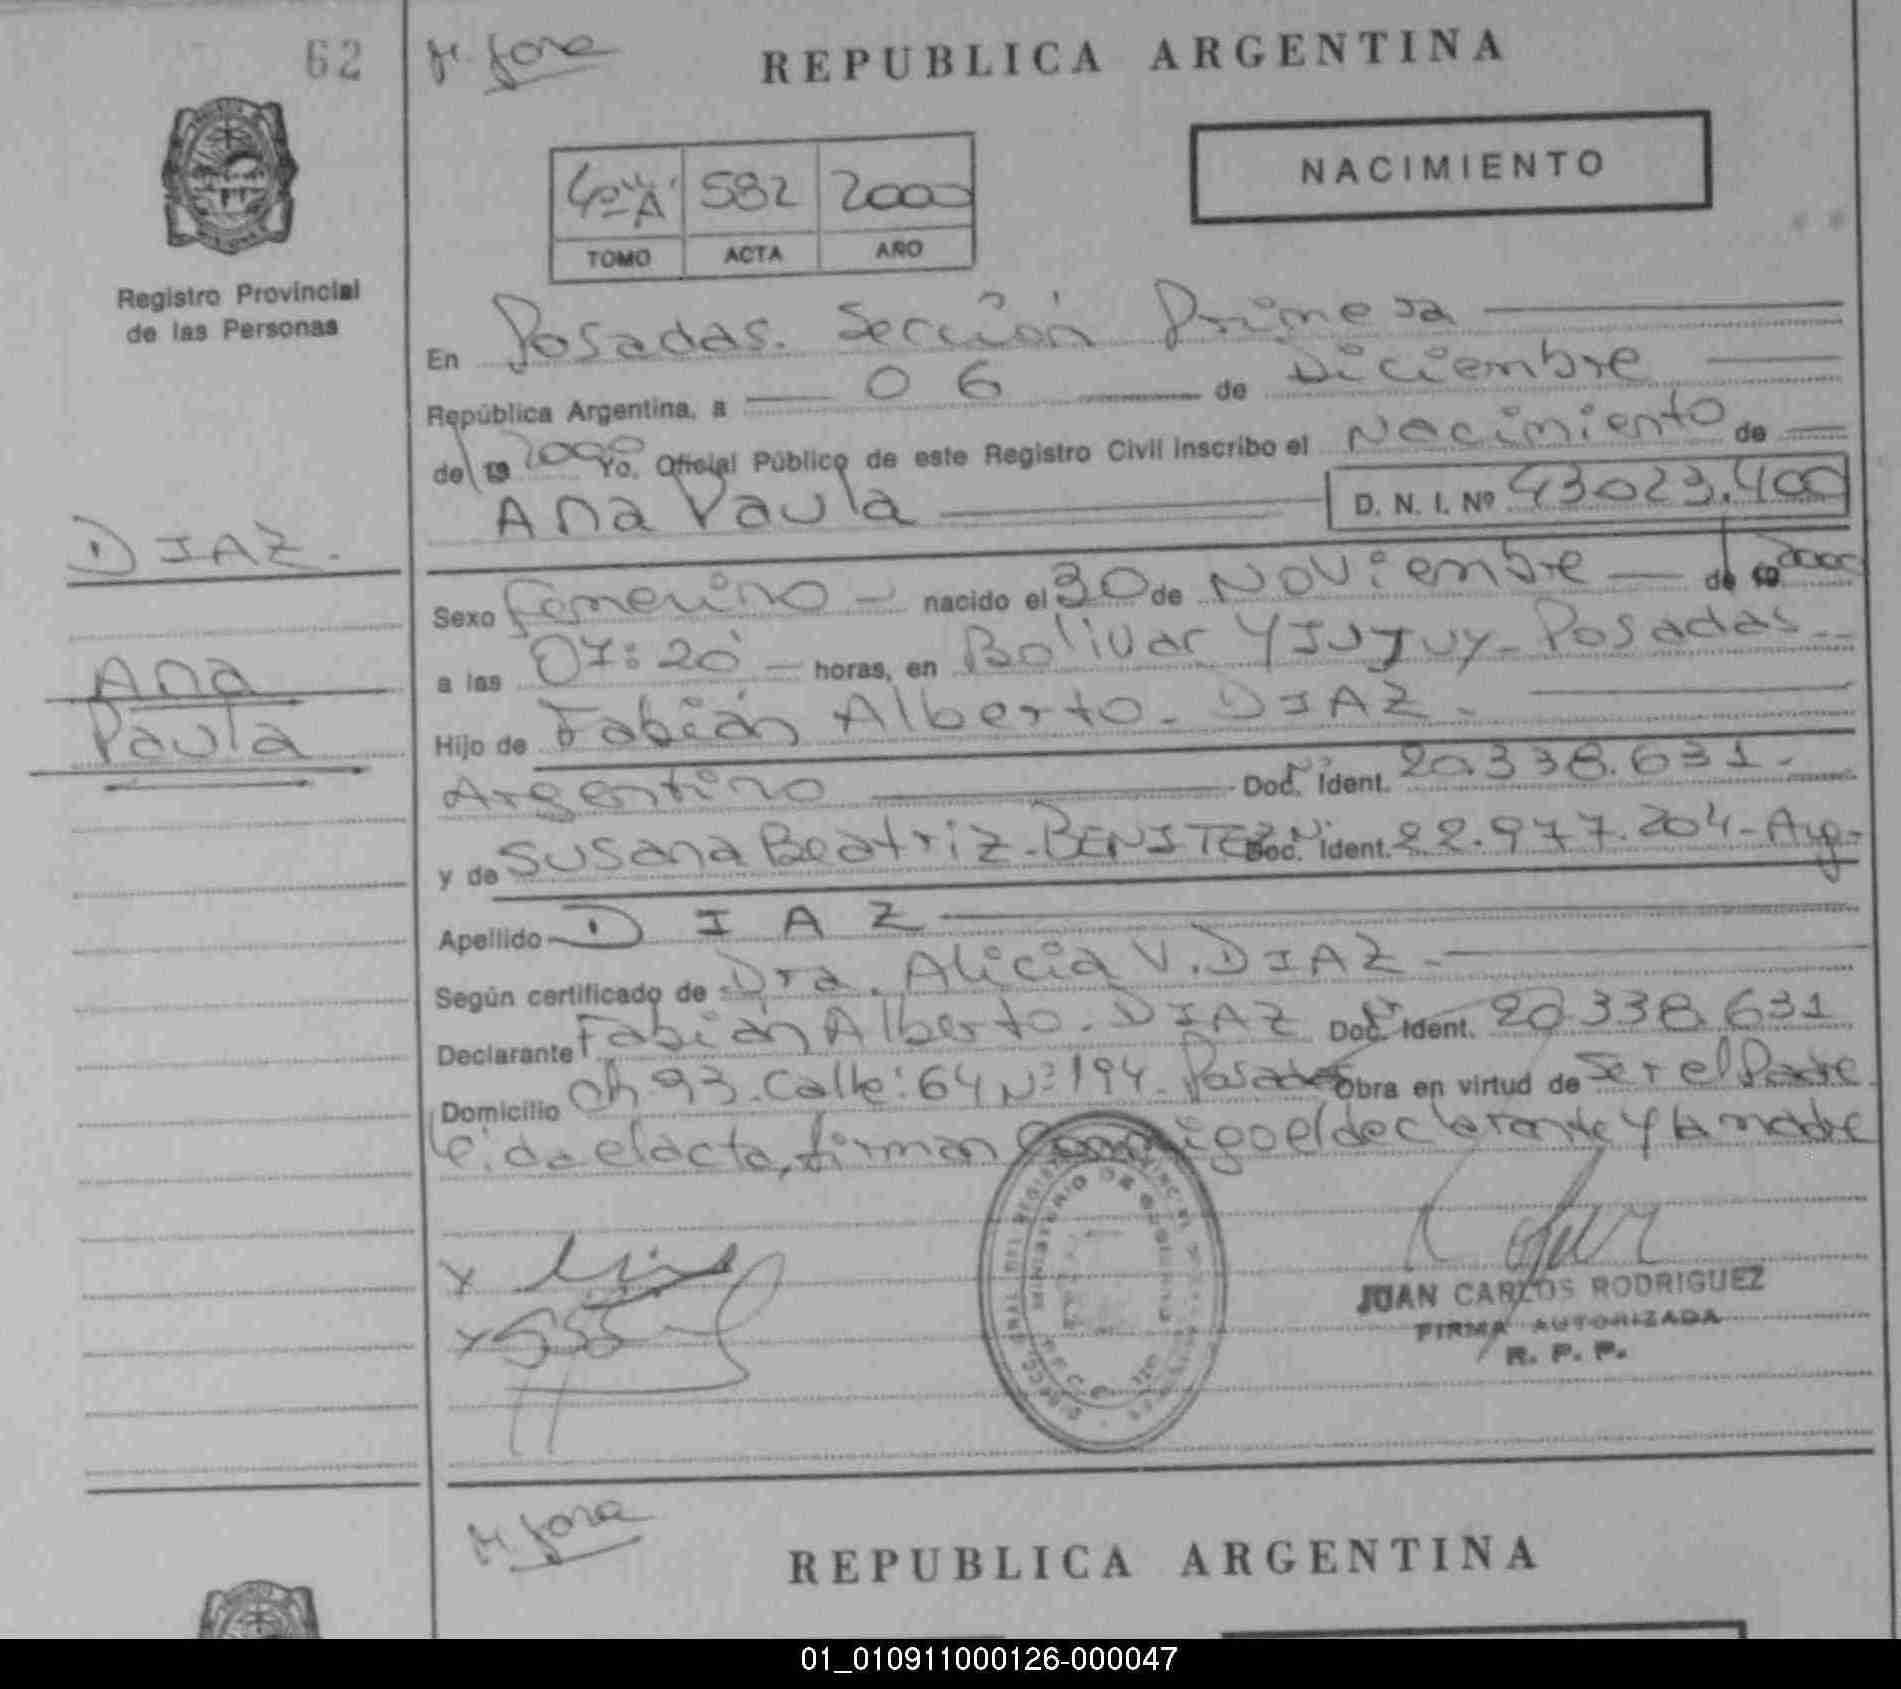 62
REPUBLICA ARGENTINA
NACIMIENTO
4º "A" 582 2000
TOMO ACTA AÑO
Registro Provincial
de las Personas
En Posadas. Sección Primera
República Argentina, a 06 de Diciembre
de 19 2000 Yo, Oficial Público de este Registro Civil inscribo el Nacimiento de
Ana Paula D. N. I. Nº 43023.400
DIAZ.
Ana
Paula
Sexo Femenino - nacido el 30 de Noviembre de 19 2000
a las 07:20 - horas, en Bolivar Y JUJUY - Posadas
Hijo de Fabián Alberto. DIAZ.
Argentino Doc. Ident. 20.338.631.
y de Susana Beatriz. BENITEZ Doc. Ident. 22.977.204 - Arg.
Apellido DIAZ
Según certificado de Dra. Alicia V. DIAZ.
Declarante Fabián Alberto. DIAZ Doc. Ident. 20.338.631
Domicilio Ch 93. Calle: 64 Nº 194. Posadas Obra en virtud de Ser el Padre
leida el acta, firman conmigo el declarante y la madre
MINISTERIO DE GOBIERNO
JUAN CARLOS RODRIGUEZ
FIRMA AUTORIZADA
R. P. P.
REPUBLICA ARGENTINA
01_010911000126-000047